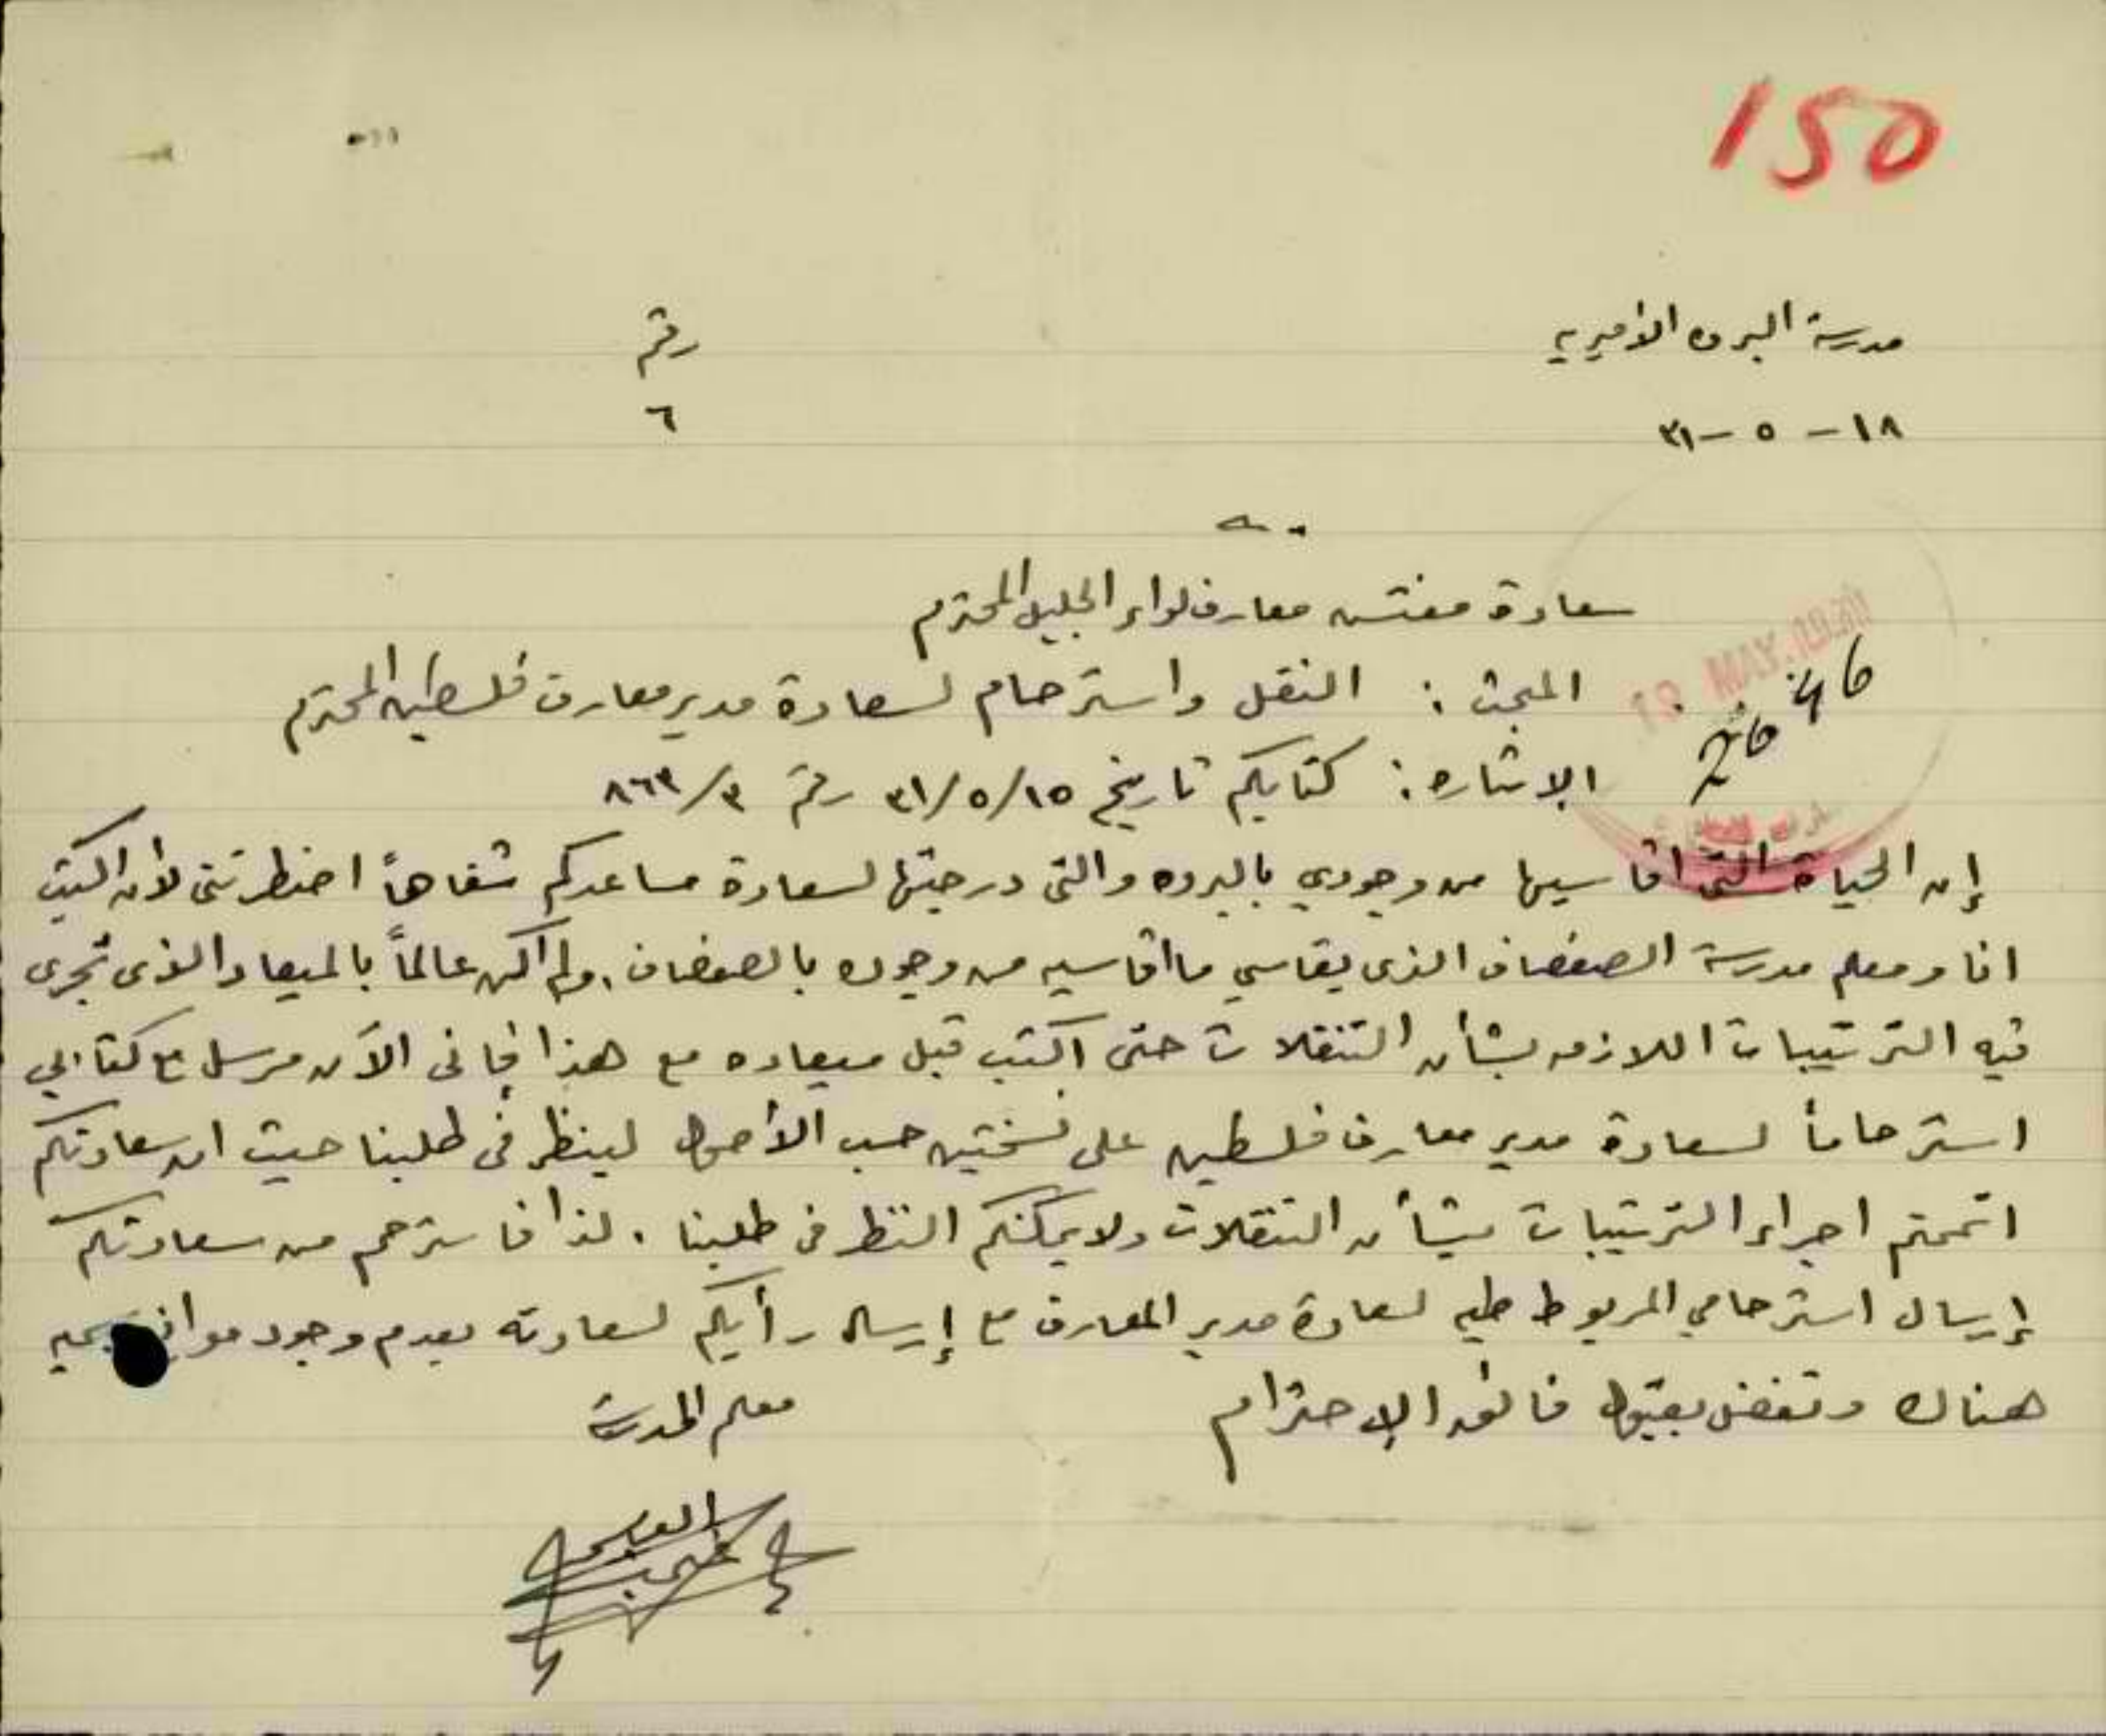 150
مدرسة البروه الأميريه
رقم
٦
١٨ - ٥ - ٣١
سعادة مفتش معارف لواء الجليل المحترم
المبحث : النقل واسترحام لسعادة مدير معارف فلسطين المحترم
الاشاره : كتابكم تاريخ ١٥/٥/٣١ رقم ٣/٨٦٣
19 MAY
إن الحياة التي اقاسيها من وجودي بالبروه والتي درجتها لسعادة مساعدكم شفاهاً اضطرتني لأن اكتب
انا ومعلم مدرسة الصفصاف الذى يقاسي ما اقاسيه من وجوده بالصفصاف . ولم اكن عالماً بالميعاد الذى تجرى
فيه الترتيبات اللازمه بشأن التنقلات حتى اكتب قبل ميعاده مع هذا فإنى الآن مرسل مع كتابي
استرحاماً لسعادة مدير معارف فلسطين على نسختين حسب الأصول لينظر فى طلبنا حيث ان سعادتكم
اتممتم اجراء الترتيبات بشأن التنقلات ولا يمكنكم النظر فى طلبنا . لذا فاسترحم من سعادتكم
إرسال استرحامي المربوط طيه لسعادة مدير المعارف مع إرسال رأيكم لسعادته بعدم وجود
هناك وتفضل بقبول فائق الإحترام
معلم المدرسة